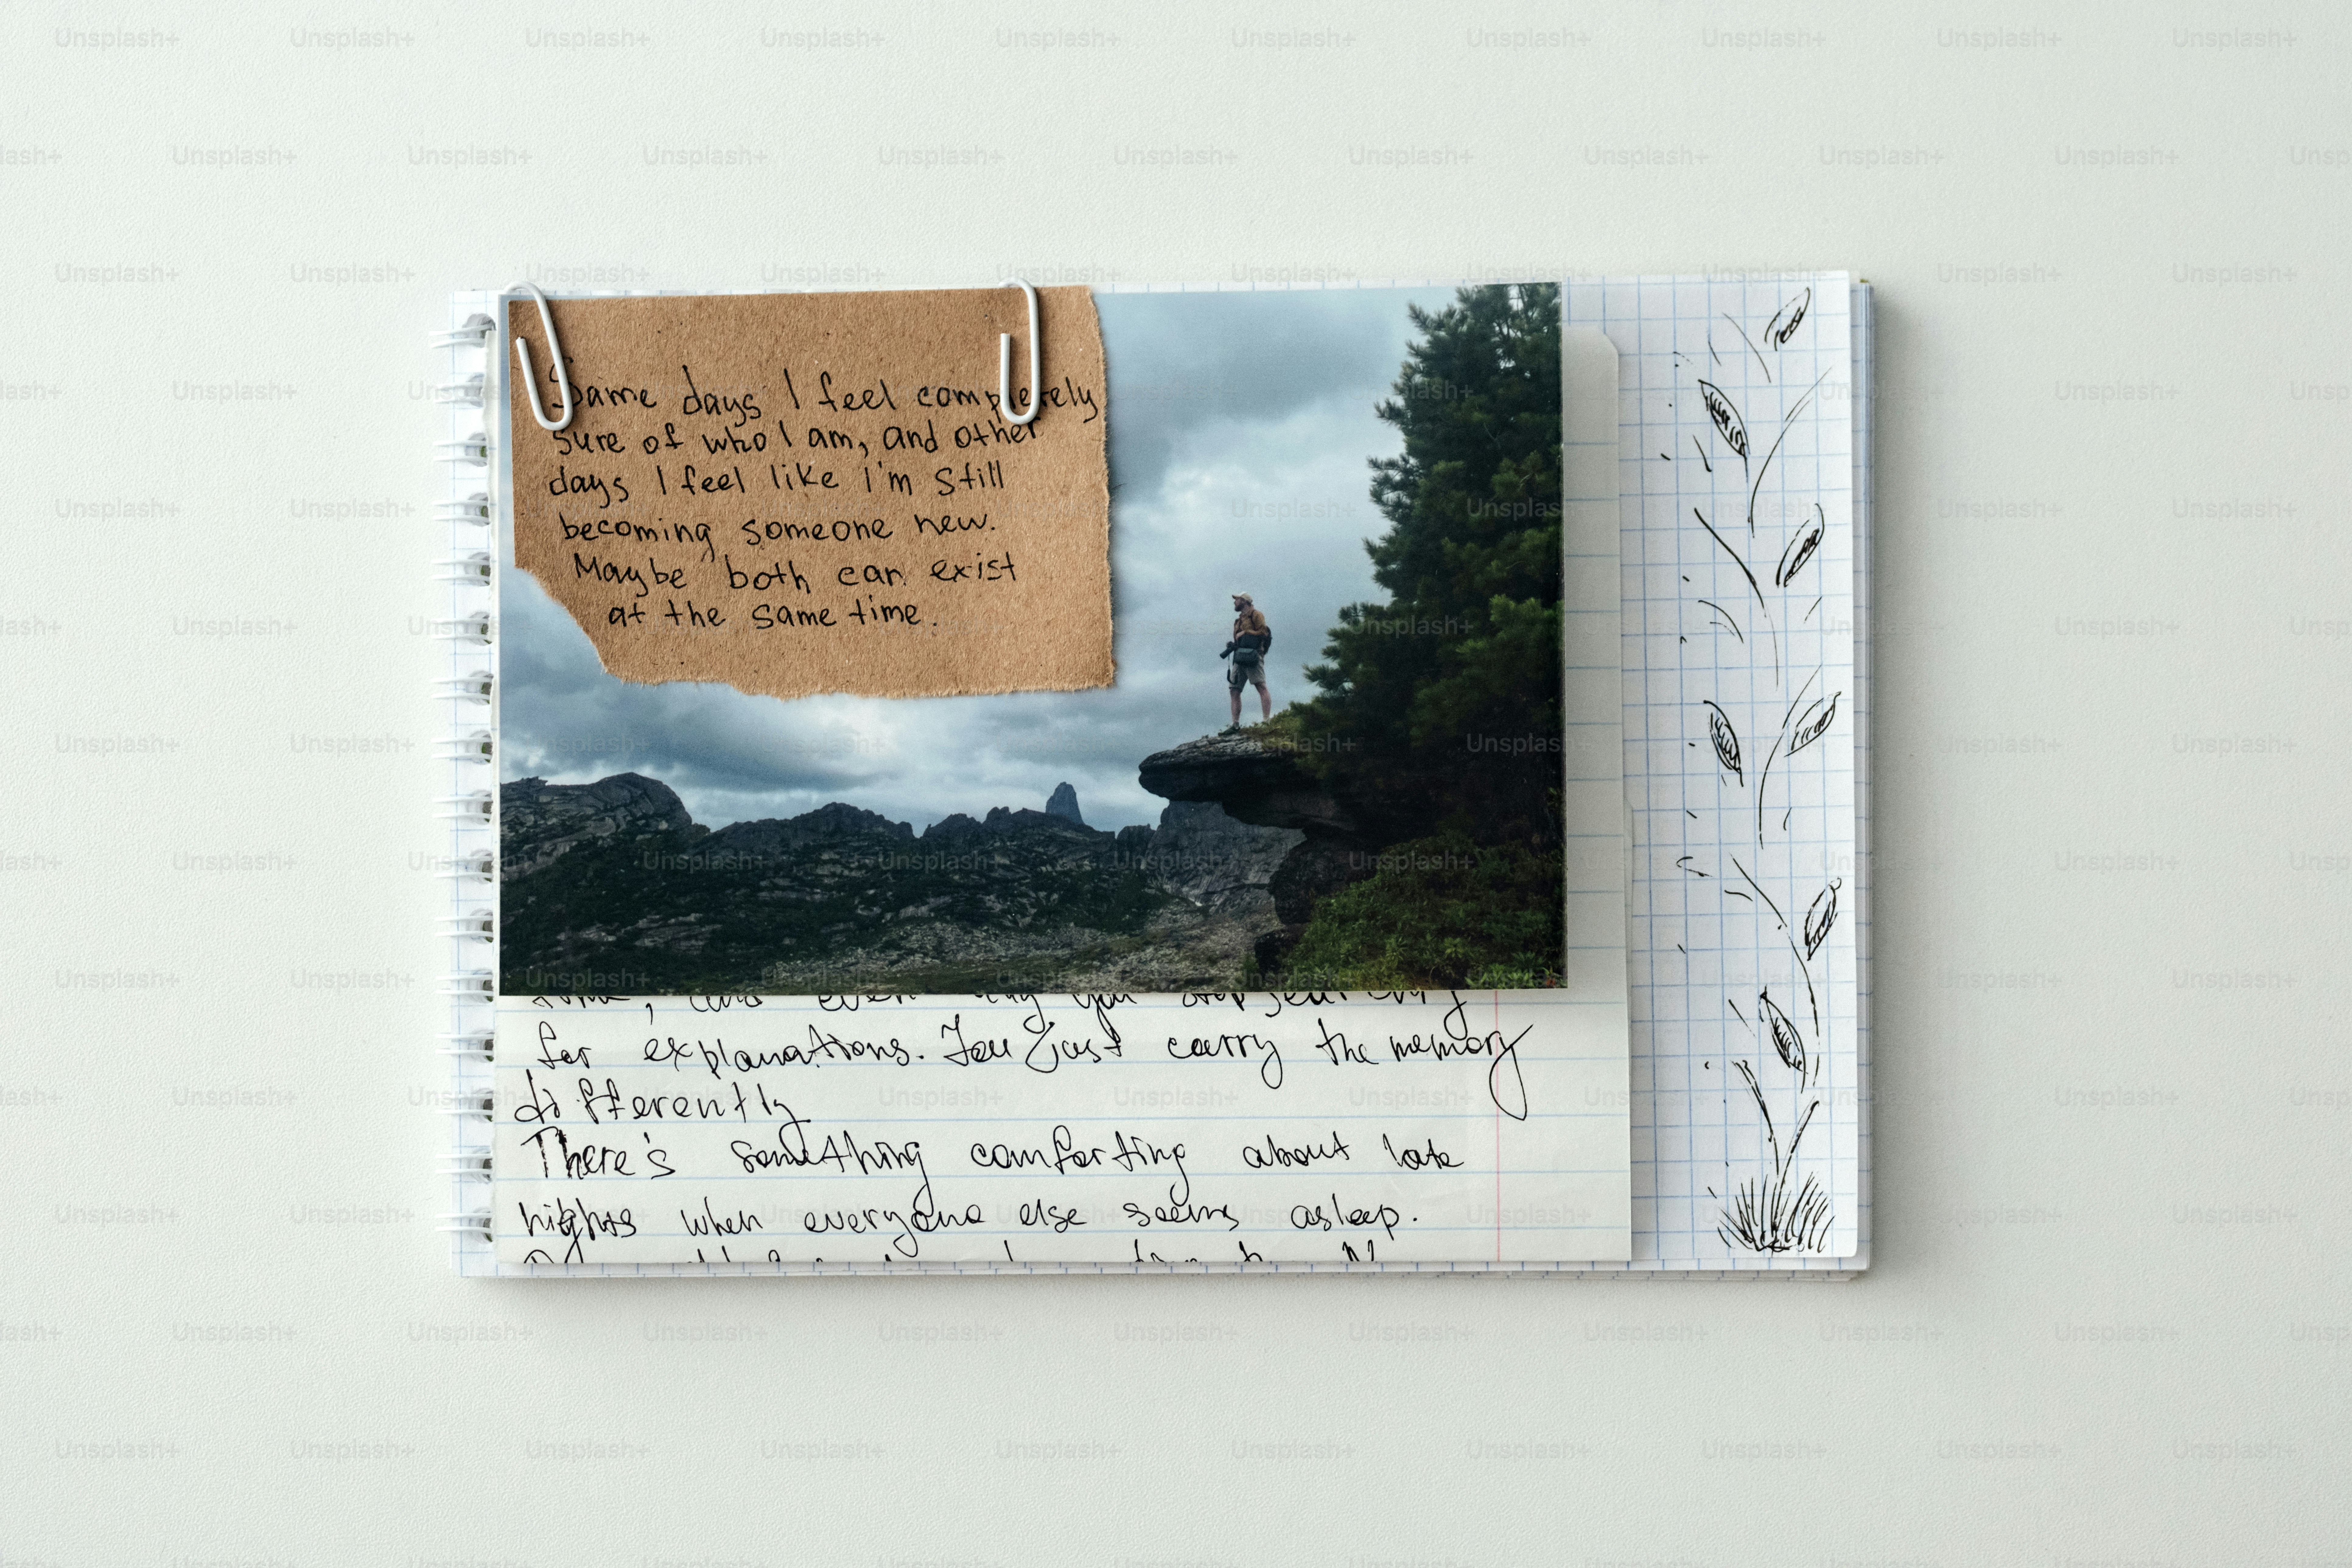 Same days I feel completely
sure of who I am, and other
days I feel like I'm still
becoming someone new.
Maybe both can exist
at the same time.
for explanations. You just carry the memory
differently
There's something comforting about late
nights when everyone else seems asleep.
Unsplash+